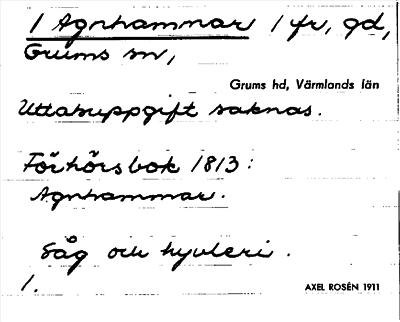 1 Agnhammar 1 fr, gd,
Grums sn,
Grums hd, Värmlands län
Uttalsuppgift saknas.
Förhörsbok 1813:
Agnhammar.
Såg och hyvleri.
1.
AXEL ROSÉN 1911